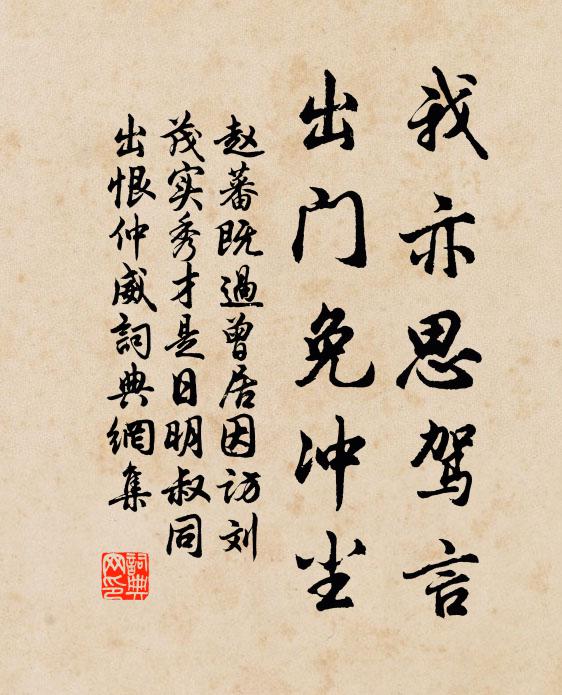 我亦思驾言
出门免冲尘
赵蕃既過曾居因访刘
茂实秀才是日明叔同
出恨仲威詞典網集
詞典网印